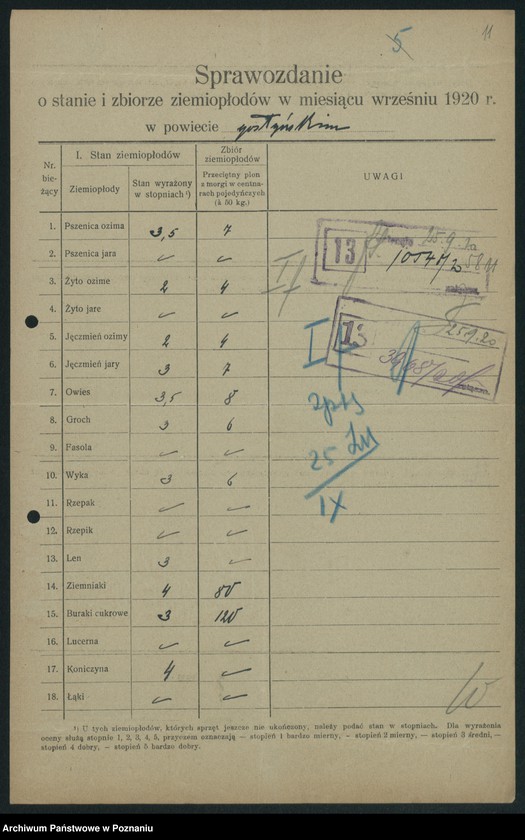 5
11
Sprawozdanie
o stanie i zbiorze ziemiopłodów w miesiącu wrześniu 1920 r.
w powiecie gostyńskim
Nr. bie-żący
I. Stan ziemiopłodów
Zbiór ziemiopłodów
UWAGI
Ziemiopłody
Stan wyrażony w stopniach ¹)
Przeciętny plon z morgi w centna-rach pojedyńczych (à 50 kg.)
1. Pszenica ozima 3,5 7
2. Pszenica jara
3. Żyto ozime 2 4
4. Żyto jare
5. Jęczmień ozimy 2 4
6. Jęczmień jary 3 7
7. Owies 3,5 8
8. Groch 3 6
9. Fasola
10. Wyka 3 6
11. Rzepak
12. Rzepik
13. Len 3
14. Ziemniaki 4 80
15. Buraki cukrowe 3 120
16. Lucerna
17. Koniczyna 4
18. Łąki
13
25.9.20
13
25.9.20
I
25
IX
¹) U tych ziemiopłodów, których sprzęt jeszcze nie ukończony, należy podać stan w stopniach. Dla wyrażenia
oceny służą stopnie 1, 2, 3, 4, 5, przyczem oznaczają — stopień 1 bardzo mierny, — stopień 2 mierny, — stopień 3 średni, —
stopień 4 dobry, — stopień 5 bardzo dobry.
Archiwum Państwowe w Poznaniu